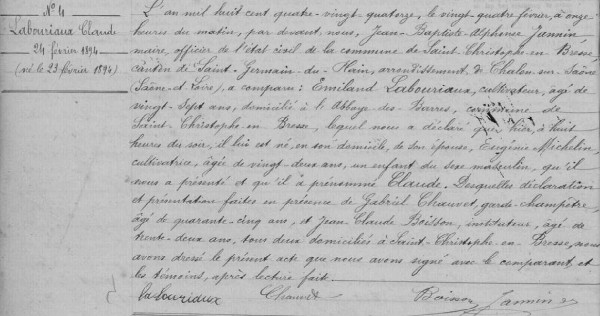 N° 4
Labouriaux Claude
24 février 1894
(né le 23 février 1894)
L'an mil huit cent quatre-vingt-quatorze, le vingt-quatre février, à onze
heures du matin, par devant nous, Jean-Baptiste-Alphonse Jannin
maire, officier de l'état civil de la commune de Saint-Christophe-en-Bresse,
canton de Saint-Germain-du-Plain, arrondissement de Chalon-sur-Saône
(Saône-et-Loire) a comparu: Emiland Labouriaux, cultivateur, âgé de
vingt-sept ans, domicilié à l'Abbaye-des-Barres, commune de
Saint-Christophe-en-Bresse, lequel nous a déclaré que hier, à huit
heures du soir, il lui est né, en son domicile, de son épouse, Eugénie Michelin,
cultivatrice, âgée de vingt-deux ans, un enfant du sexe masculin, qu'il
nous a présenté et qu'il a prénommé Claude. Desquelles déclaration
et présentation faites en présence de Gabriel Chauvot, garde-champêtre,
âgé de quarante-cinq ans, et Jean-Claude Boisson, instituteur, âgé de
trente-deux ans, tous deux domiciliés à Saint-Christophe-en-Bresse, nous
avons dressé le présent acte que nous avons signé avec le comparant et
les témoins, après lecture faite.
labouriaux Chauvot Boisson Jannin